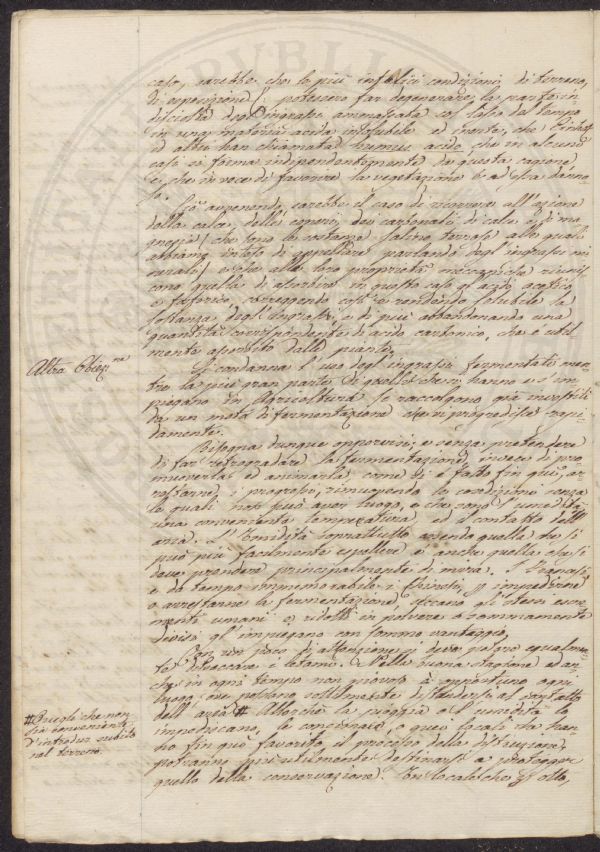 caso, sarebbe che le più infelici condizioni di terreno,
di esposizione &. potessero far degenerare la parte in-
disciolta degl'ingrassi ammassata col lasso del tempo
in una materia acida insolubile ed inerte, che Einhof
ed altri han chiamata humus acido, che in alcuni
casi si forma independentemente da questa cagione
e che invece di favorire la vegetazione è ad essa danno-
so.
Ciò avvenendo, sarebbe il caso di ricorrere all'azione
della calce, delle ceneri, dei carbonati di calce e di ma-
gnesia (che sono le sostanze salino terrose alle quali
abbiamo voluto di appellare parlando degl'ingrassi mi-
nerali) e che alle loro proprietà meccaniche riunis-
cono quelle di assorbire in questo caso gl'acidi acetico
e fosforico, correggendo così e rendendo solubile la
sostanza degl'ingrassi, e di più abbandonando una
quantità corrispondente di acido carbonico, che è util-
mente assorbito dalle piante.
Altra Obiez.ne
Si condanna l'uso degl'ingrassi fermentati men-
tre la più gran parte di quelli che si hanno e s'im-
piegano in Agricoltura si raccolgono già investiti
da un moto di fermentazione che in progredisce rapi-
damente.
Bisogna dunque opporvisi, e senza pretendere
di far retrogradare la fermentazione, invece di pro-
muoverla ed animarla come si è fatto fin qui, ar-
restarne i progressi, rimuovendo le condizioni senza
le quali non può aver luogo, e che sono l'umidità,
una conveniente temperatura, ed il contatto dell'
aria. L'Umidità soprattutto essendo quella che si
può più facilmente espellere è anche quella che si
deve prendere principalmente di mira.
e da tempo immemorabile i Chinesi, p. impedirne
o arrestarne la fermentazione, seccano gli stessi escre-
menti umani e ridotti in polvere o sommamente
divisi gl'impiegano con sommo vantaggio.
Con un poco di attenzione si deve potere egualmen-
te disseccare i letami. Nella buona stagione ed an-
che in ogni tempo non piovoso è opportuno ogni
luogo ove possano sottilmente distendersi al contatto
dell'aria # Allorchè la pioggia e l'umidità lo
impediscano, le concimaie, o quei locali che han-
no fin quì favorito il processo della distruzione,
potranno più utilmente destinarsi a proteggere
quello della conservazione. In locale che p. olto,
# Quegli che non
sia conveniente
d'introdur subito
nel terreno.